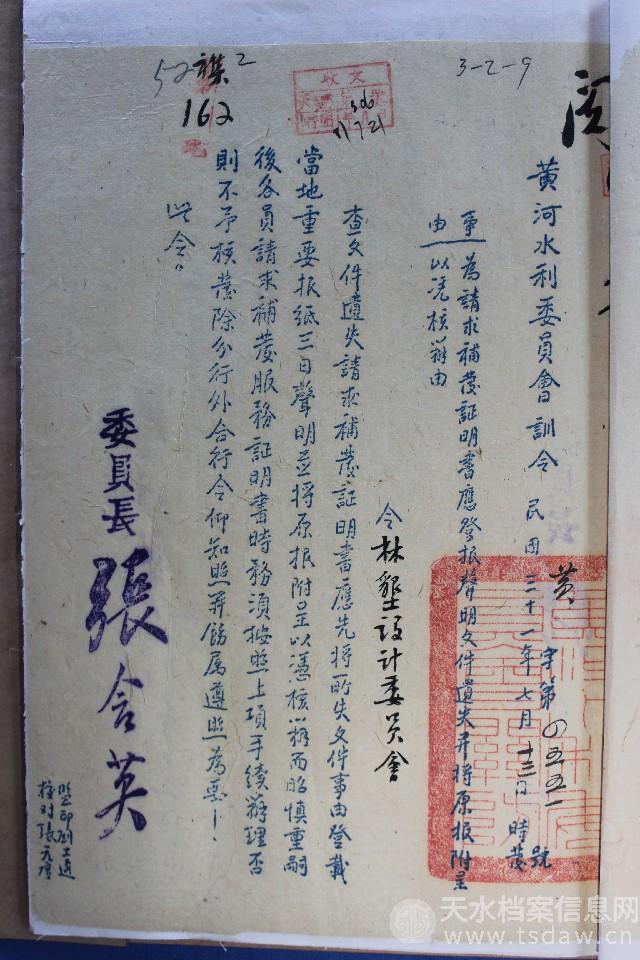 黃河水利委員會訓令
黃字第四五五一號
民國三十一年七月十三日 時發
事 為請求補發証明書應登报聲明文件遺失并將原报附呈
由 以凭核辦由
令林墾設计委员會
查文件遺失請求補發証明書應先將所失文件事由登載
當地重要报紙三日聲明並將原报附呈以憑核辦而昭慎重嗣
後各員請求補發服務証明書時務須按照上項手續辦理否
則不予核發除分行外合行令仰知照并飭属遵照為要！
此令。
委員長 張含英
监印
校对張
3-2-9
收文
31 7 21
52
2
162
天水档案信息网
www.tsdaw.cn